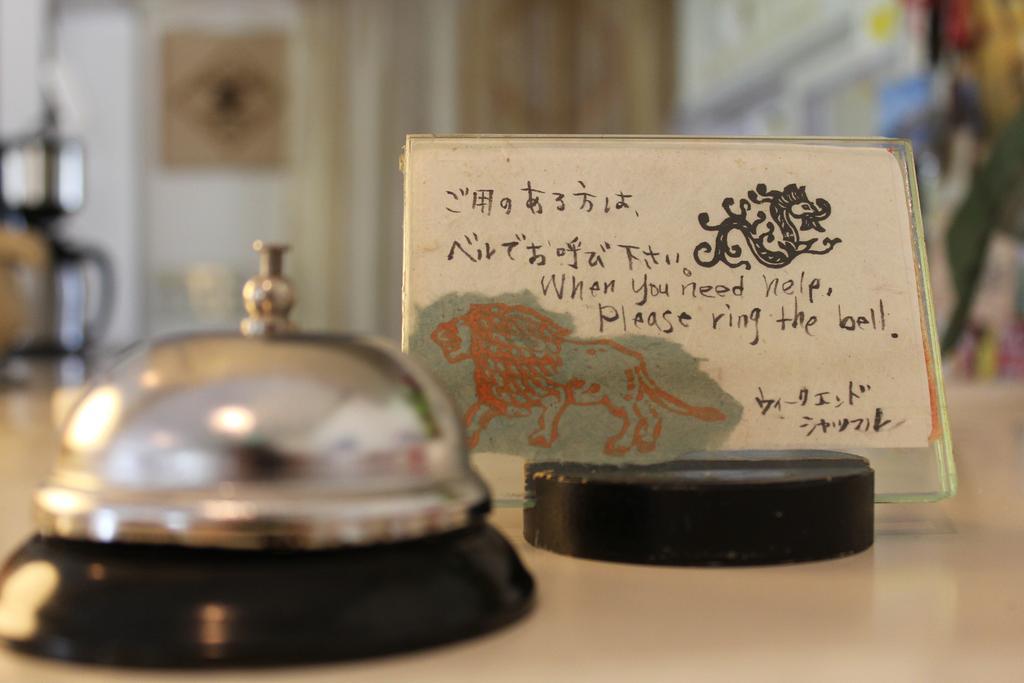 ご用のある方は、
ベルでお呼び下さい。
When you need help,
Please ring the bell.
ウィークエンド
シャッフル